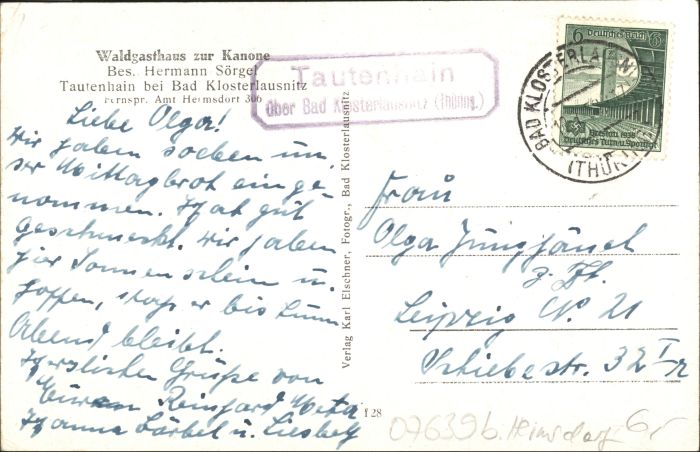 Waldgasthaus zur Kanone
Bes. Hermann Sörgel
Tautenhain bei Bad Klosterlausnitz
Fernspr. Amt Hermsdorf 306
Tautenhain
über Bad Klosterlausnitz (Thüring.)
6 Deutsches Reich 6
Breslau 1938
Deutsches Turn u. Sportfest
BAD KLOSTERLAUSNITZ
(THÜR.)
Liebe Olga!
Wir haben soeben un
ser Mittagbrot einge
nommen. Hat gut
geschmeckt. Wir haben
hier Sonnenschein u.
hoffen, daß er bis zum
Abend bleibt.
Herzlichen Grüße von
Euren Reinhard Meta
Hanna Bärbel u. Liesbeth
Verlag Karl Elschner, Fotogr., Bad Klosterlausnitz
Frau
Olga Junghänel
z. Zt.
Leipzig N. 21
Schiebestr. 32 I r
128
07639 b. Hermsdorf 6,-